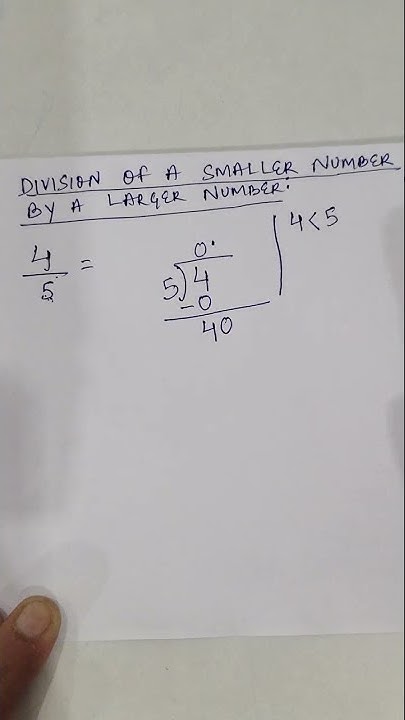 DIVISION OF A SMALLER NUMBER
BY A LARGER NUMBER.
4/5 =
0.
5)4
-0
40
4<5